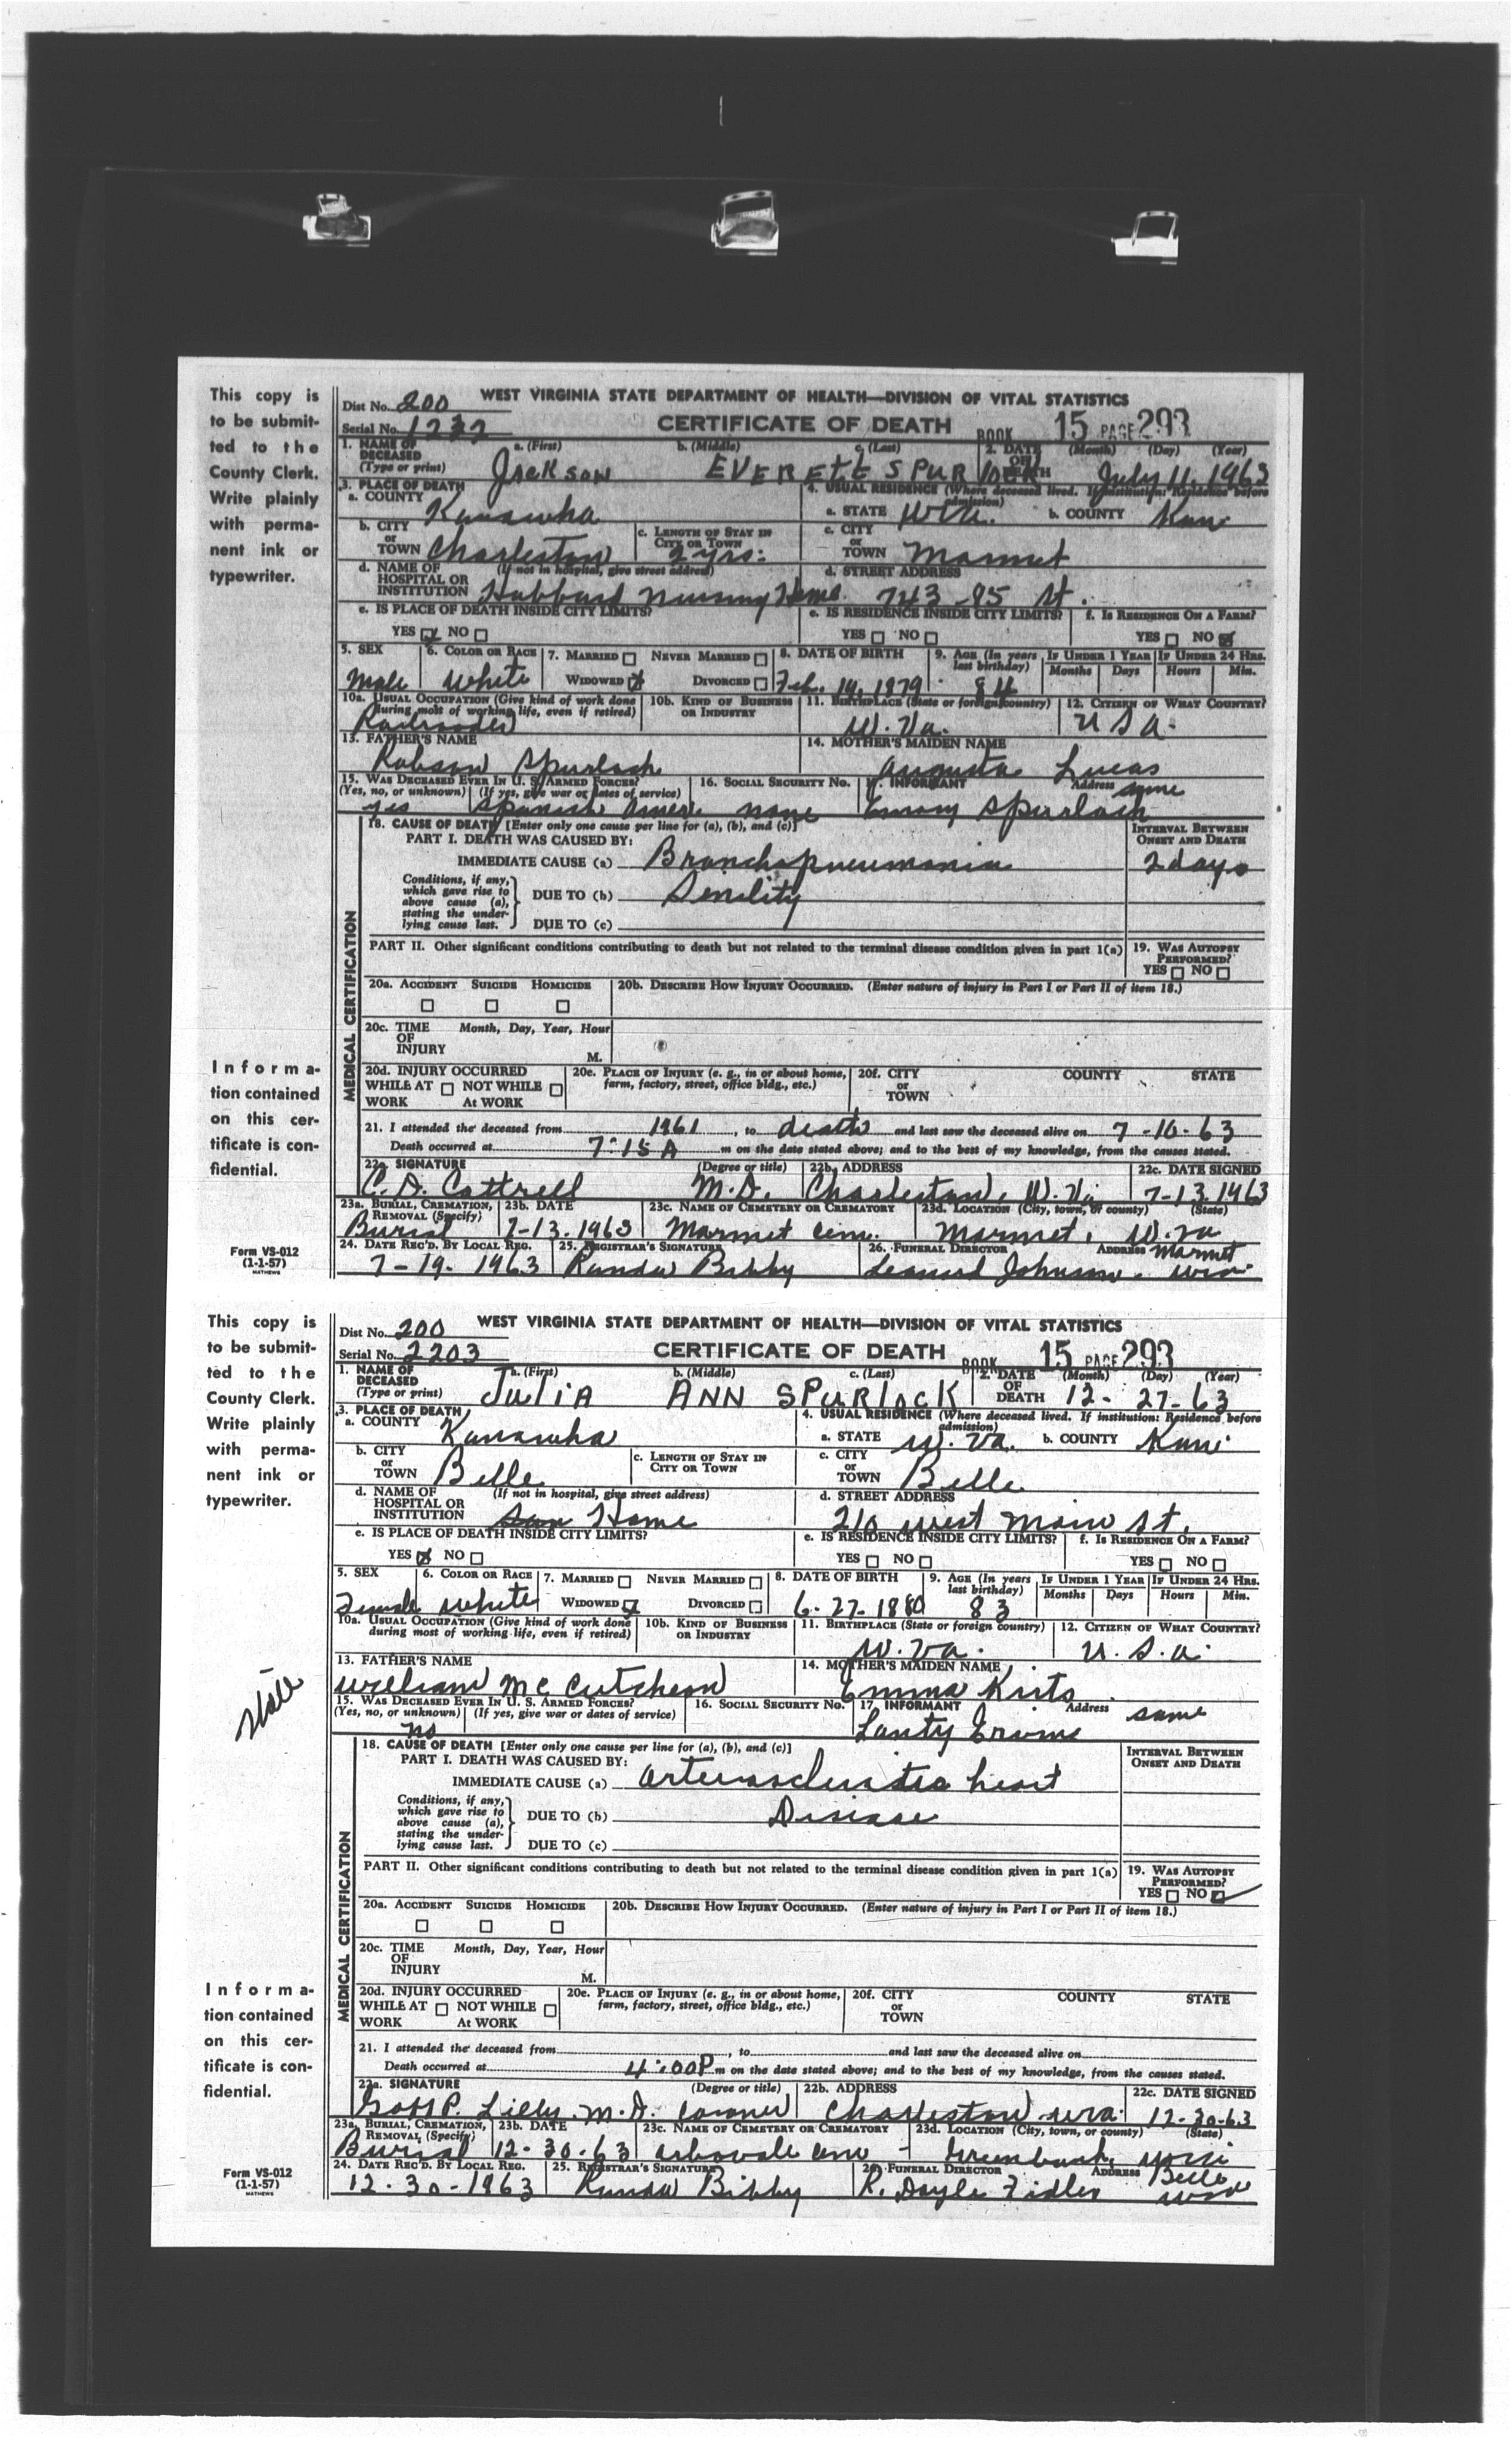 This copy is
to be submit-
ted to the
County Clerk.
Write plainly
with perma-
nent ink or
typewriter.
Dist No. 200 WEST VIRGINIA STATE DEPARTMENT OF HEALTH—DIVISION OF VITAL STATISTICS
Serial No. 1232 CERTIFICATE OF DEATH BOOK 15 PAGE 293
1. NAME OF DECEASED (Type or print) a. (First) b. (Middle) c. (Last) 2. DATE OF DEATH (Month) (Day) (Year)
Jackson EVERETE SPURlOCK July 11, 1963
3. PLACE OF DEATH 4. USUAL RESIDENCE (Where deceased lived. If institution: Residence before admission)
a. COUNTY Kanawha a. STATE WVa. b. COUNTY Kan.
b. CITY or TOWN Charleston c. LENGTH OF STAY IN CITY OR TOWN 2 yrs: c. CITY or TOWN Marmet
d. NAME OF HOSPITAL OR INSTITUTION (If not in hospital, give street address) Hubbard Nursing Home d. STREET ADDRESS 743-95 St.
e. IS PLACE OF DEATH INSIDE CITY LIMITS? e. IS RESIDENCE INSIDE CITY LIMITS? f. IS RESIDENCE ON A FARM?
YES NO YES NO YES NO
5. SEX 6. COLOR OR RACE 7. MARRIED NEVER MARRIED 8. DATE OF BIRTH 9. AGE (In years last birthday) IF UNDER 1 YEAR IF UNDER 24 HRS.
Months Days Hours Min.
Male White WIDOWED DIVORCED Feb. 14, 1879 84
10a. USUAL OCCUPATION (Give kind of work done during most of working life, even if retired) 10b. KIND OF BUSINESS OR INDUSTRY 11. BIRTHPLACE (State or foreign country) 12. CITIZEN OF WHAT COUNTRY?
Railroader W. Va. USA.
13. FATHER'S NAME 14. MOTHER'S MAIDEN NAME
Robson Spurlock Augusta Lucas
15. WAS DECEASED EVER IN U. S. ARMED FORCES? 16. SOCIAL SECURITY No. 17. INFORMANT Address same
(Yes, no, or unknown) (If yes, give war or dates of service)
yes Spanish Amer. none Emory Spurlock
MEDICAL CERTIFICATION
18. CAUSE OF DEATH [Enter only one cause per line for (a), (b), and (c)] INTERVAL BETWEEN ONSET AND DEATH
PART I. DEATH WAS CAUSED BY:
IMMEDIATE CAUSE (a) Bronchopneumonia 2 days
Conditions, if any, which gave rise to above cause (a), stating the underlying cause last.
DUE TO (b) Senility
DUE TO (c)
PART II. Other significant conditions contributing to death but not related to the terminal disease condition given in part 1(a) 19. WAS AUTOPSY PERFORMED?
YES NO
20a. ACCIDENT SUICIDE HOMICIDE 20b. DESCRIBE HOW INJURY OCCURRED. (Enter nature of injury in Part I or Part II of item 18.)
20c. TIME OF INJURY Month, Day, Year, Hour
M.
20d. INJURY OCCURRED 20e. PLACE OF INJURY (e. g., in or about home, farm, factory, street, office bldg., etc.) 20f. CITY or TOWN COUNTY STATE
WHILE AT WORK NOT WHILE AT WORK
21. I attended the deceased from 1961, to death and last saw the deceased alive on 7-10-63
Death occurred at 7:15 A m on the date stated above; and to the best of my knowledge, from the causes stated.
22a. SIGNATURE (Degree or title) 22b. ADDRESS 22c. DATE SIGNED
C. D. Cottrell M.D. Charleston, W. Va 7-13-1963
23a. BURIAL, CREMATION, REMOVAL (Specify) 23b. DATE 23c. NAME OF CEMETERY OR CREMATORY 23d. LOCATION (City, town, or county) (State)
Burial 7-13-1963 Marmet Cem. Marmet, W. Va
24. DATE REC'D. BY LOCAL REG. 25. REGISTRAR'S SIGNATURE 26. FUNERAL DIRECTOR ADDRESS Marmet
7-19-1963 Bibby Leonard Johnson WVa.
Informa-
tion contained
on this cer-
tificate is con-
fidential.
Form VS-012
(1-1-57)
MATHEWS
This copy is
to be submit-
ted to the
County Clerk.
Write plainly
with perma-
nent ink or
typewriter.
Dist No. 200 WEST VIRGINIA STATE DEPARTMENT OF HEALTH—DIVISION OF VITAL STATISTICS
Serial No. 2203 CERTIFICATE OF DEATH BOOK 15 PAGE 293
1. NAME OF DECEASED (Type or print) a. (First) b. (Middle) c. (Last) 2. DATE OF DEATH (Month) (Day) (Year)
JuliA ANN SPURlOCK 12-27-63
3. PLACE OF DEATH 4. USUAL RESIDENCE (Where deceased lived. If institution: Residence before admission)
a. COUNTY Kanawha a. STATE W. Va. b. COUNTY Kan.
b. CITY or TOWN Belle c. LENGTH OF STAY IN CITY OR TOWN c. CITY or TOWN Belle
d. NAME OF HOSPITAL OR INSTITUTION (If not in hospital, give street address) Home d. STREET ADDRESS 210 West Main St.
e. IS PLACE OF DEATH INSIDE CITY LIMITS? e. IS RESIDENCE INSIDE CITY LIMITS? f. IS RESIDENCE ON A FARM?
YES NO YES NO YES NO
5. SEX 6. COLOR OR RACE 7. MARRIED NEVER MARRIED 8. DATE OF BIRTH 9. AGE (In years last birthday) IF UNDER 1 YEAR IF UNDER 24 HRS.
Months Days Hours Min.
Female White WIDOWED DIVORCED 6-27-1880 83
10a. USUAL OCCUPATION (Give kind of work done during most of working life, even if retired) 10b. KIND OF BUSINESS OR INDUSTRY 11. BIRTHPLACE (State or foreign country) 12. CITIZEN OF WHAT COUNTRY?
W. Va. U.S.A.
13. FATHER'S NAME 14. MOTHER'S MAIDEN NAME
William McCutcheon Emma
state
15. WAS DECEASED EVER IN U. S. ARMED FORCES? 16. SOCIAL SECURITY No. 17. INFORMANT Address same
(Yes, no, or unknown) (If yes, give war or dates of service)
no Lanty
MEDICAL CERTIFICATION
18. CAUSE OF DEATH [Enter only one cause per line for (a), (b), and (c)] INTERVAL BETWEEN ONSET AND DEATH
PART I. DEATH WAS CAUSED BY:
IMMEDIATE CAUSE (a) Arteriosclerotic heart
Conditions, if any, which gave rise to above cause (a), stating the underlying cause last.
DUE TO (b) Disease
DUE TO (c)
PART II. Other significant conditions contributing to death but not related to the terminal disease condition given in part 1(a) 19. WAS AUTOPSY PERFORMED?
YES NO
20a. ACCIDENT SUICIDE HOMICIDE 20b. DESCRIBE HOW INJURY OCCURRED. (Enter nature of injury in Part I or Part II of item 18.)
20c. TIME OF INJURY Month, Day, Year, Hour
M.
20d. INJURY OCCURRED 20e. PLACE OF INJURY (e. g., in or about home, farm, factory, street, office bldg., etc.) 20f. CITY or TOWN COUNTY STATE
WHILE AT WORK NOT WHILE AT WORK
21. I attended the deceased from , to and last saw the deceased alive on
Death occurred at 4:00P m on the date stated above; and to the best of my knowledge, from the causes stated.
22a. SIGNATURE (Degree or title) 22b. ADDRESS 22c. DATE SIGNED
Goff P. Lilly M.D. Coroner Charleston WVa. 12-30-63
23a. BURIAL, CREMATION, REMOVAL (Specify) 23b. DATE 23c. NAME OF CEMETERY OR CREMATORY 23d. LOCATION (City, town, or county) (State)
Burial 12-30-63 Arbovale Cem Greenbank,
24. DATE REC'D. BY LOCAL REG. 25. REGISTRAR'S SIGNATURE 26. FUNERAL DIRECTOR ADDRESS Belle
12-30-1963 Bibby R. Doyle Fidler WVa
Informa-
tion contained
on this cer-
tificate is con-
fidential.
Form VS-012
(1-1-57)
MATHEWS